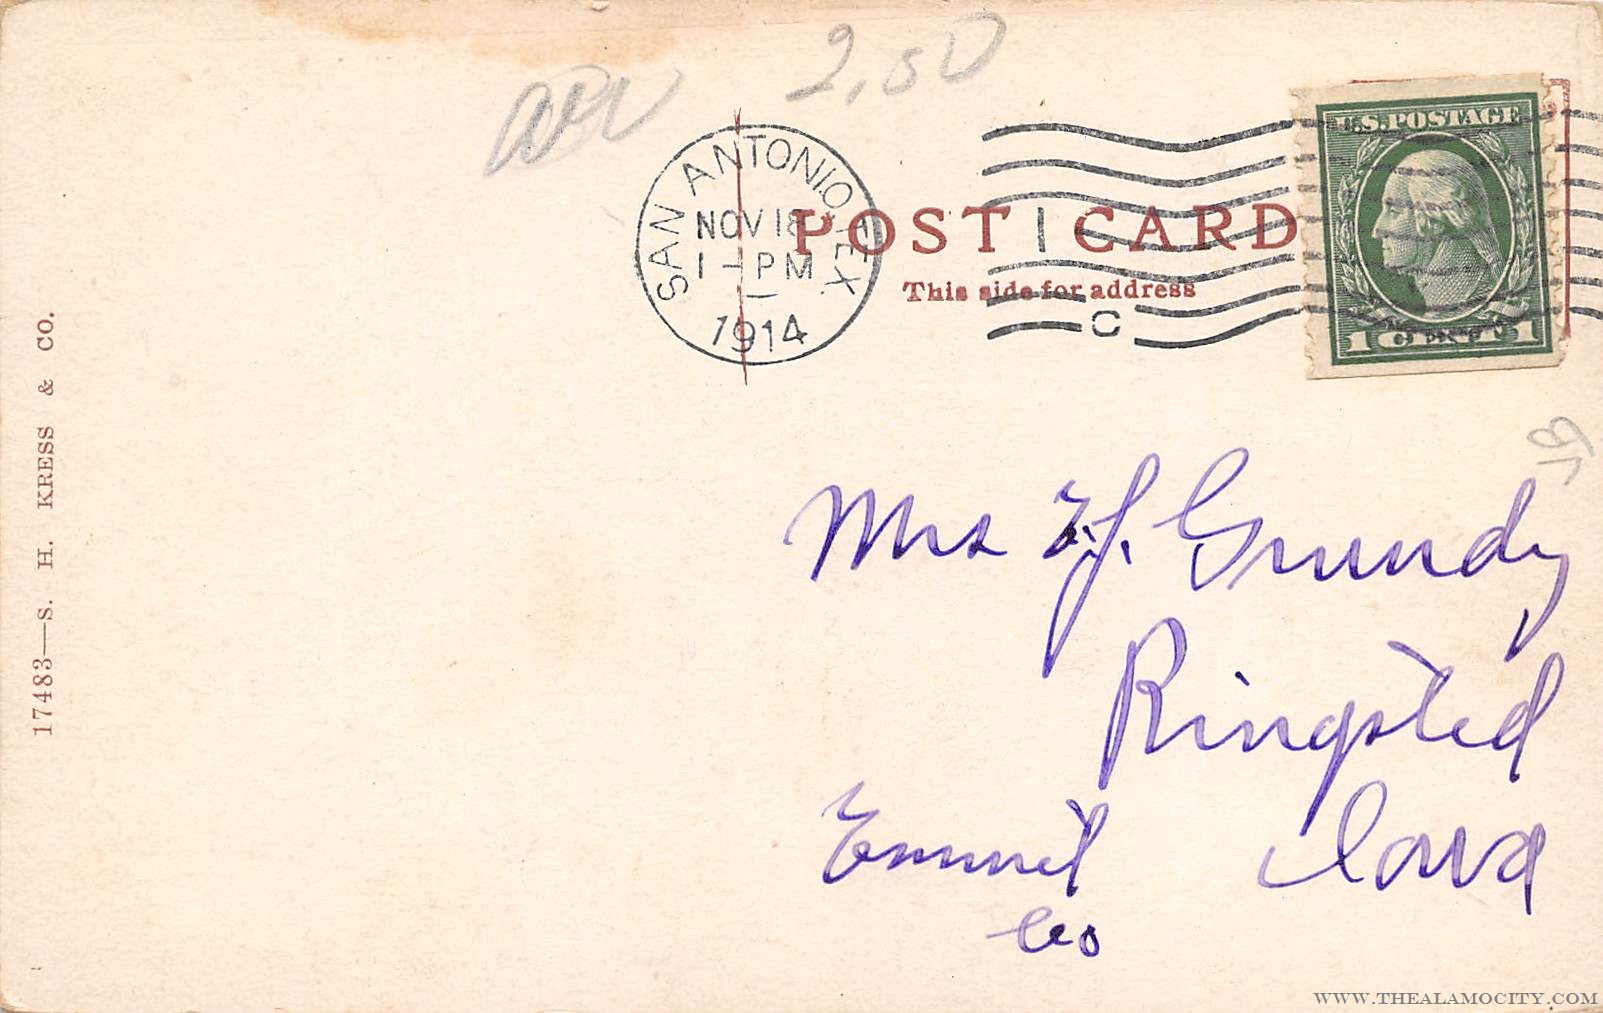 2.50
SAN ANTONIO, TEX.
NOV 18
1 - PM
1914
1
C
U.S. POSTAGE
1 CENT 1
POST CARD
This side for address
17483—S. H. KRESS & CO.
Mrs F.J. Grundy
Ringsted
Emmet Iowa
Co
WWW.THEALAMOCITY.COM